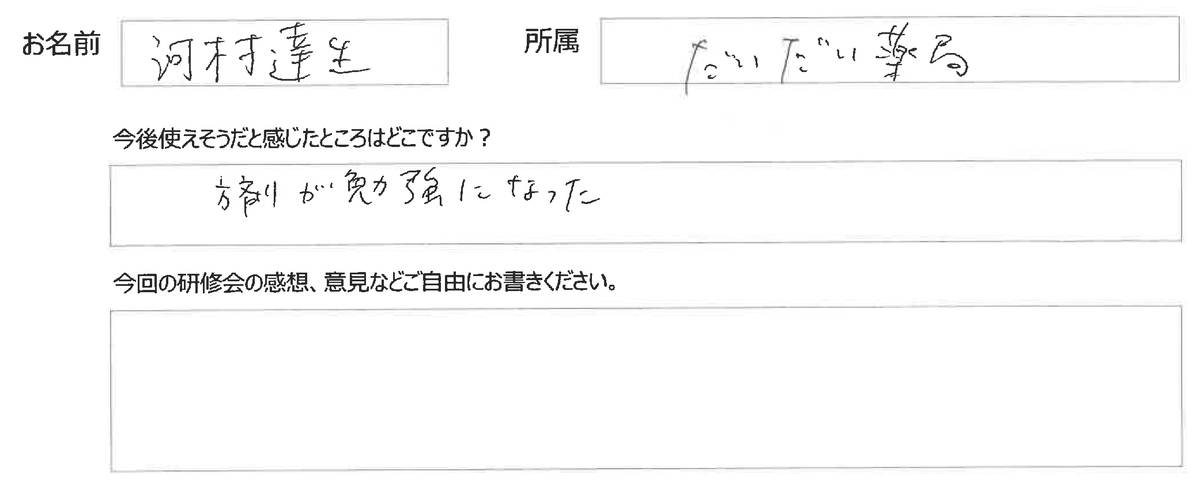 お名前 河村達生 所属 だいだい薬局
今後使えそうだと感じたところはどこですか？
方剤が勉強になった
今回の研修会の感想、意見などご自由にお書きください。